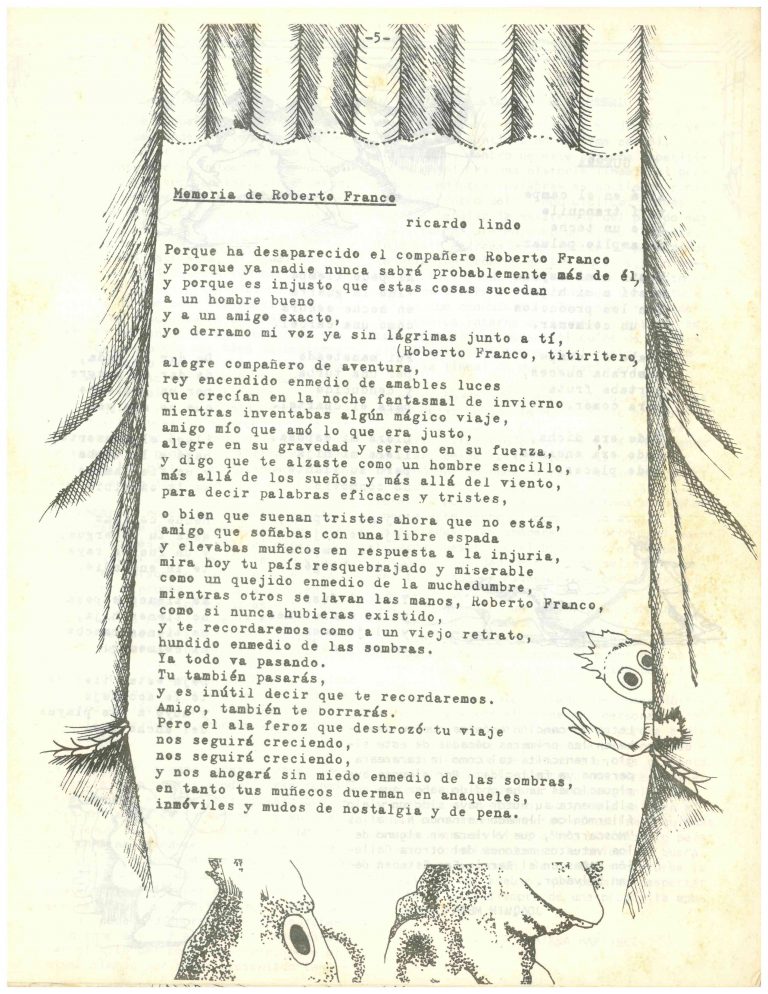 -5-
Memoria de Roberto Franco
ricardo lindo
Porque ha desaparecido el compañero Roberto Franco
y porque ya nadie nunca sabrá probablemente más de él,
y porque es injusto que estas cosas sucedan
a un hombre bueno
y a un amigo exacto,
yo derramo mi voz ya sin lágrimas junto a tí,
(Roberto Franco, titiritero,
alegre compañero de aventura,
rey encendido enmedio de amables luces
que crecían en la noche fantasmal de invierno
mientras inventabas algún mágico viaje,
amigo mío que amó lo que era justo,
alegre en su gravedad y sereno en su fuerza,
y digo que te alzaste como un hombre sencillo,
más allá de los sueños y más allá del viento,
para decir palabras eficaces y tristes,
o bien que suenan tristes ahora que no estás,
amigo que soñabas con una libre espada
y elevabas muñecos en respuesta a la injuria,
mira hoy tu país resquebrajado y miserable
como un quejido enmedio de la muchedumbre,
mientras otros se lavan las manos, Roberto Franco,
como si nunca hubieras existido,
y te recordaremos como a un viejo retrato,
hundido enmedio de las sombras.
Ya todo va pasando.
Tu también pasarás,
y es inútil decir que te recordaremos.
Amigo, también te borrarás.
Pero el ala feroz que destrozó tu viaje
nos seguirá creciendo,
nos seguirá creciendo,
y nos ahogará sin miedo enmedio de las sombras,
en tanto tus muñecos duerman en anaqueles,
inmóviles y mudos de nostalgia y de pena.